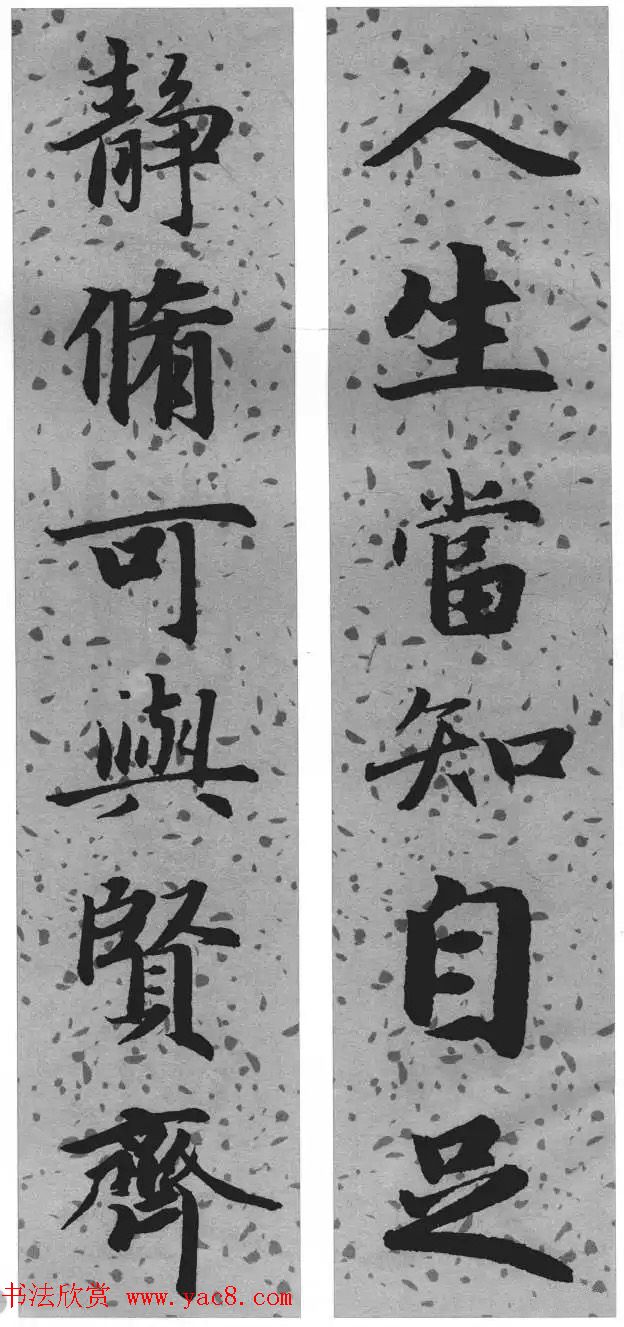 人生當知自足
静脩可與賢齊
书法欣赏 www.yac8.com